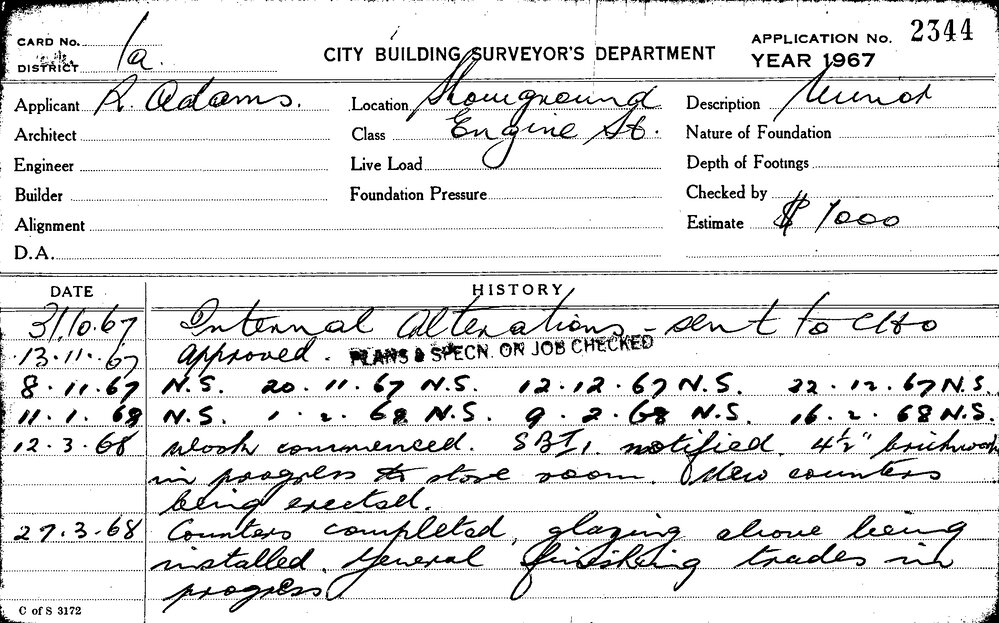 CARD No.
DISTRICT 1a.
CITY BUILDING SURVEYOR'S DEPARTMENT
APPLICATION No. 2344
YEAR 1967
Applicant R. Adams.
Location Showground
Description Minor
Architect
Class Engine St.
Nature of Foundation
Engineer
Live Load
Depth of Footings
Builder
Foundation Pressure
Checked by
Alignment
Estimate $ 1000
D.A.
DATE HISTORY
31.10.67 Internal Alterations - sent to CHO
13.11.67 approved. PLANS & SPECN. ON JOB CHECKED
8.11.67 N.S. 20.11.67 N.S. 12.12.67 N.S. 22.12.67 N.S.
11.1.68 N.S. 1.2.68 N.S. 9.2.68 N.S. 16.2.68 N.S.
12.3.68 Work commenced. SBI. notified. 4½" brickwork
in progress to store room. New counters
being erected.
27.3.68 Counters completed, glazing above being
installed. General finishing trades in
progress
C of S 3172